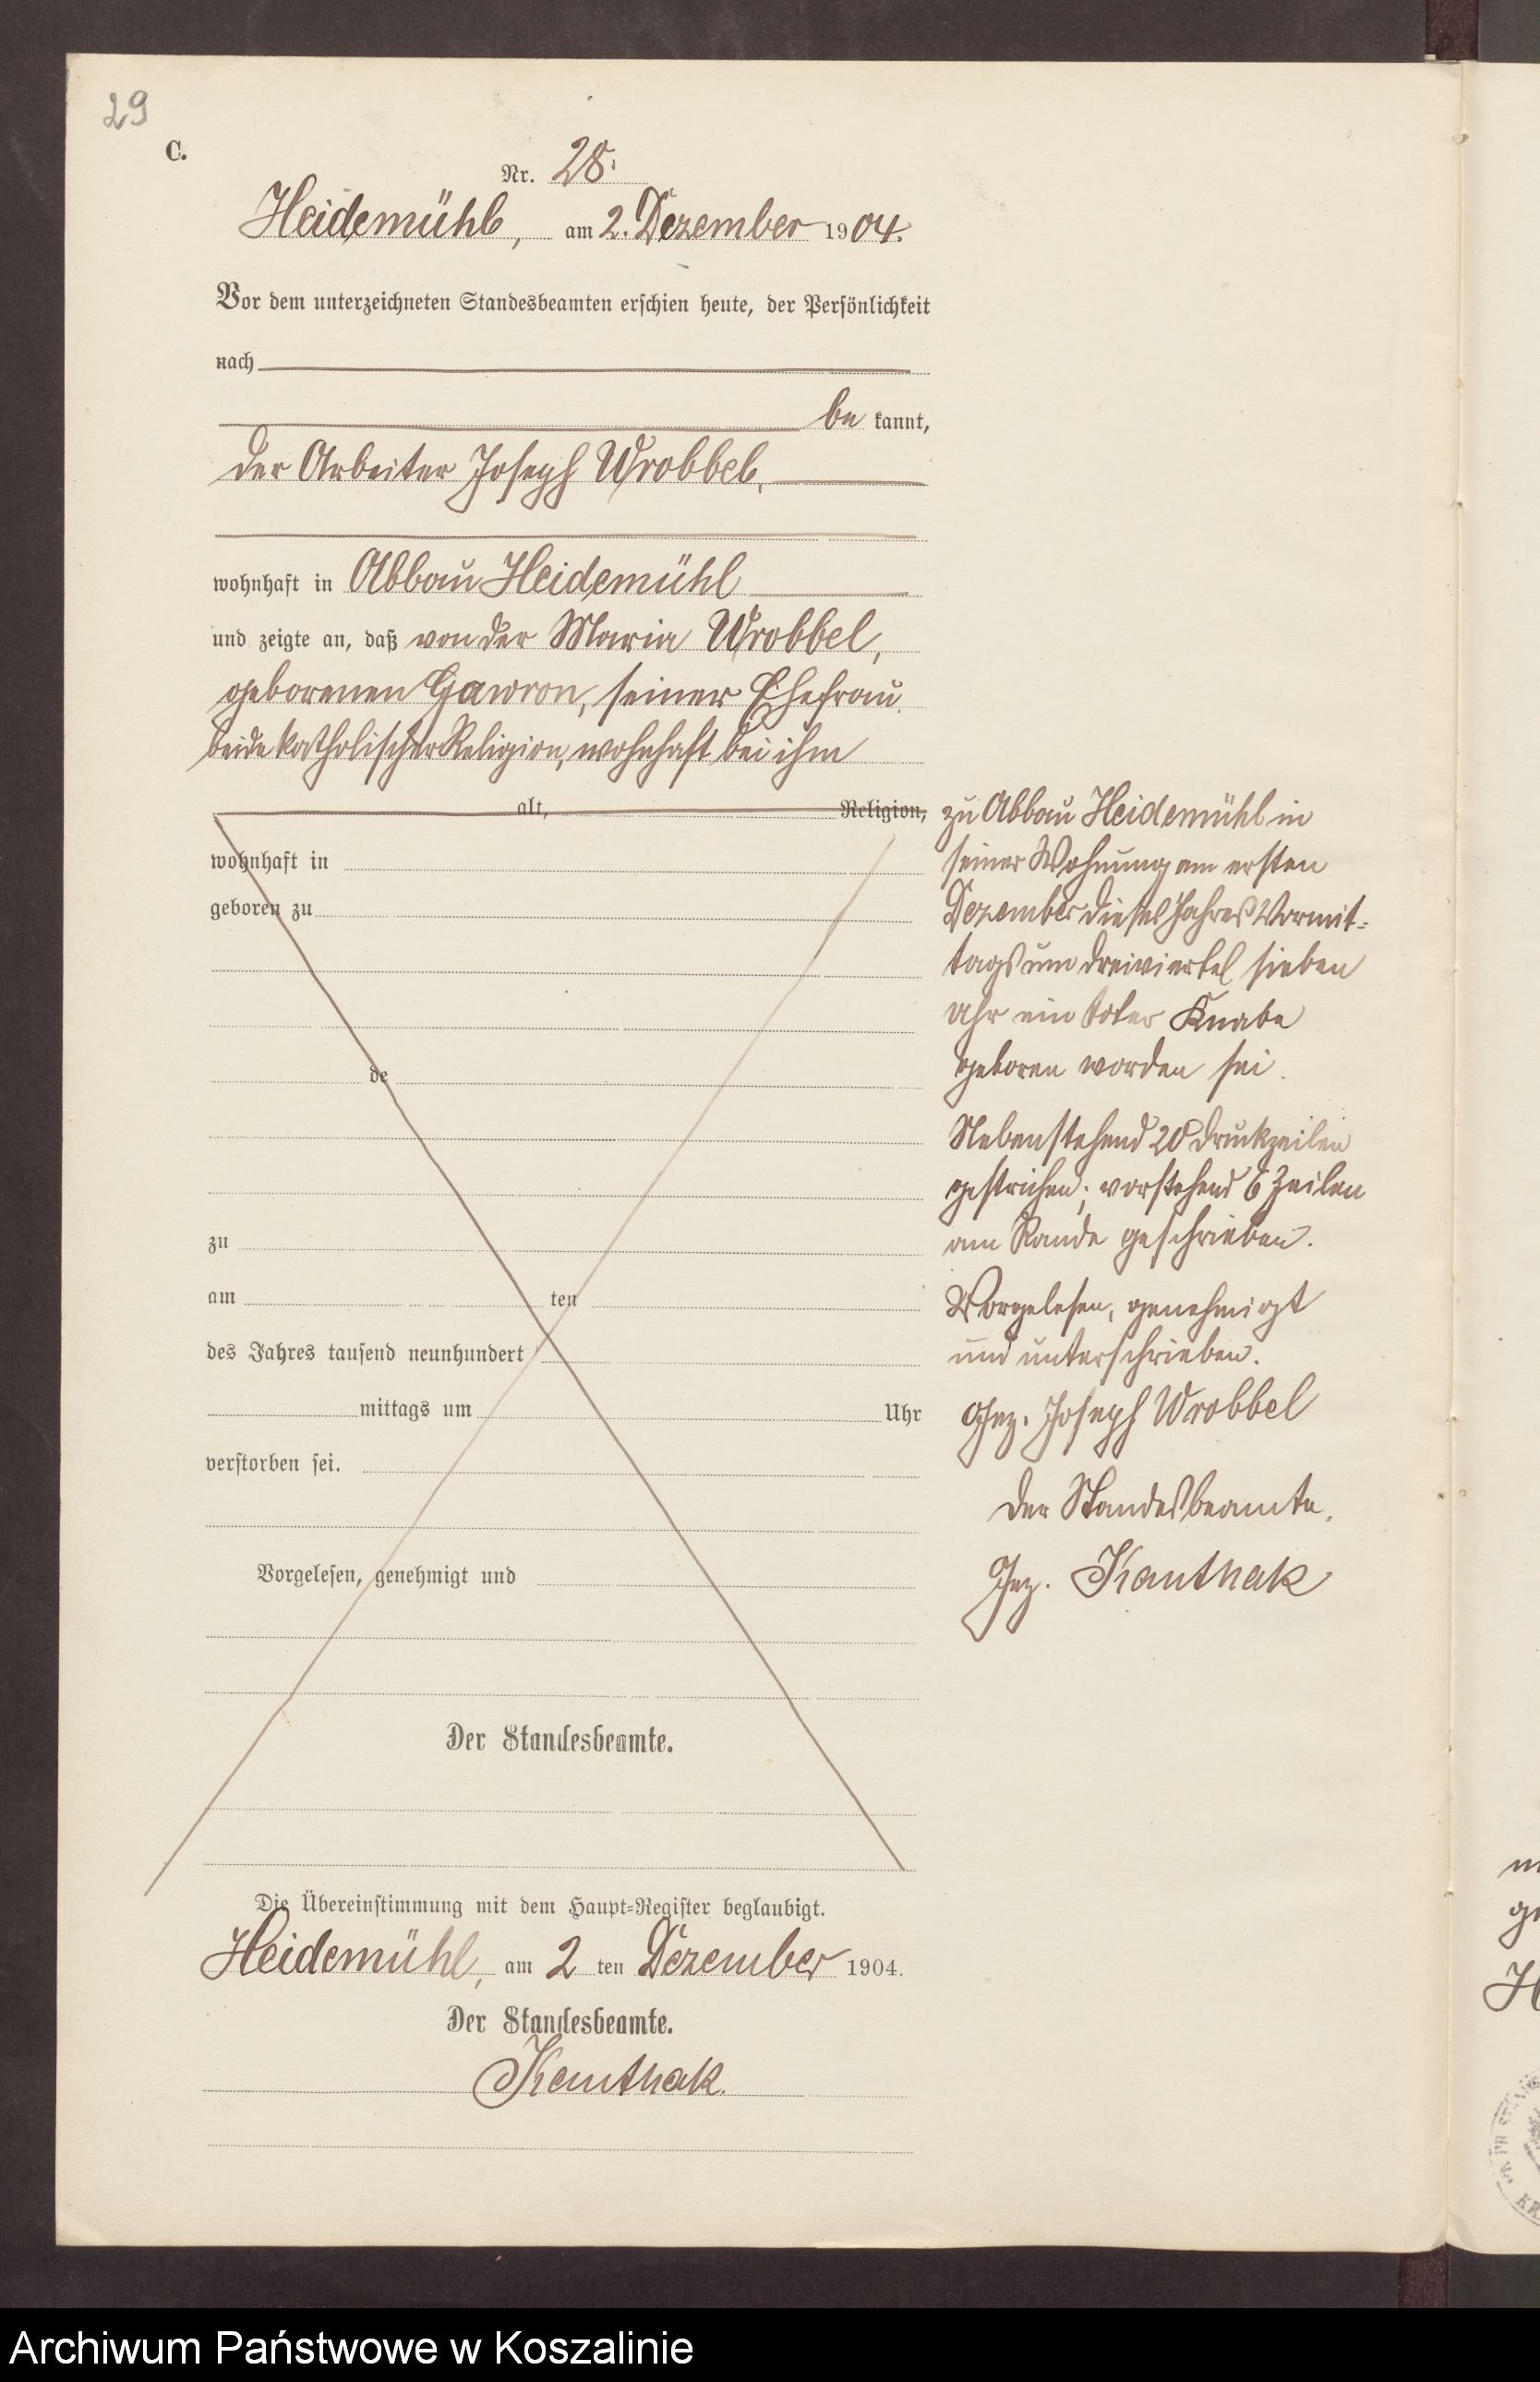 29
C.
Nr. 28.
Heidemühl, am 2. Dezember 1904.
Vor dem unterzeichneten Standesbeamten erschien heute, der Persönlichkeit
nach
be kannt,
der Arbeiter Joseph Wrobbel,
wohnhaft in Abbau Heidemühl
und zeigte an, daß von der Maria Wrobbel,
geborenen Gawron, seiner Ehefrau
beide katholischer Religion, wohnhaft bei ihm
alt, Religion,
wohnhaft in
geboren zu
de
zu
am ten
des Jahres tausend neunhundert
mittags um Uhr
verstorben sei.
Vorgelesen, genehmigt und
Der Standesbeamte.
zu Abbau Heidemühl in
seiner Wohnung am ersten
Dezember dieses Jahres Vormit-
tags um dreiviertel sieben
Uhr ein toter Knabe
geboren worden sei.
Nebenstehend 20 Druckzeilen
gestrichen; vorstehend 6 Zeilen
am Rande geschrieben.
Vorgelesen, genehmigt
und unterschrieben.
Gez. Joseph Wrobbel
Der Standesbeamte.
Gez. Kauthak
Die Übereinstimmung mit dem Haupt-Register beglaubigt.
Heidemühl, am 2 ten Dezember 1904.
Der Standesbeamte.
Kauthak.
Archiwum Państwowe w Koszalinie